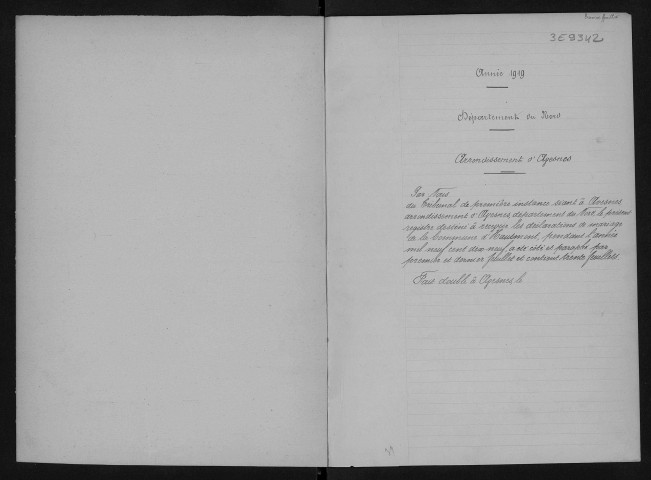 3E9342
Année 1919
Département du Nord
Arrondissement d'Avesnes
Par Nous
du Tribunal de première instance séant à Avesnes
arrondissement d'Avesnes, département du Nord, le présent
registre destiné à recevoir les déclarations de mariage
de la Commune d'Hautmont, pendant l'année
mil neuf cent dix neuf a été coté et paraphé par
premier et dernier feuillet et contient trente feuillets.
Fait double à Avesnes, le